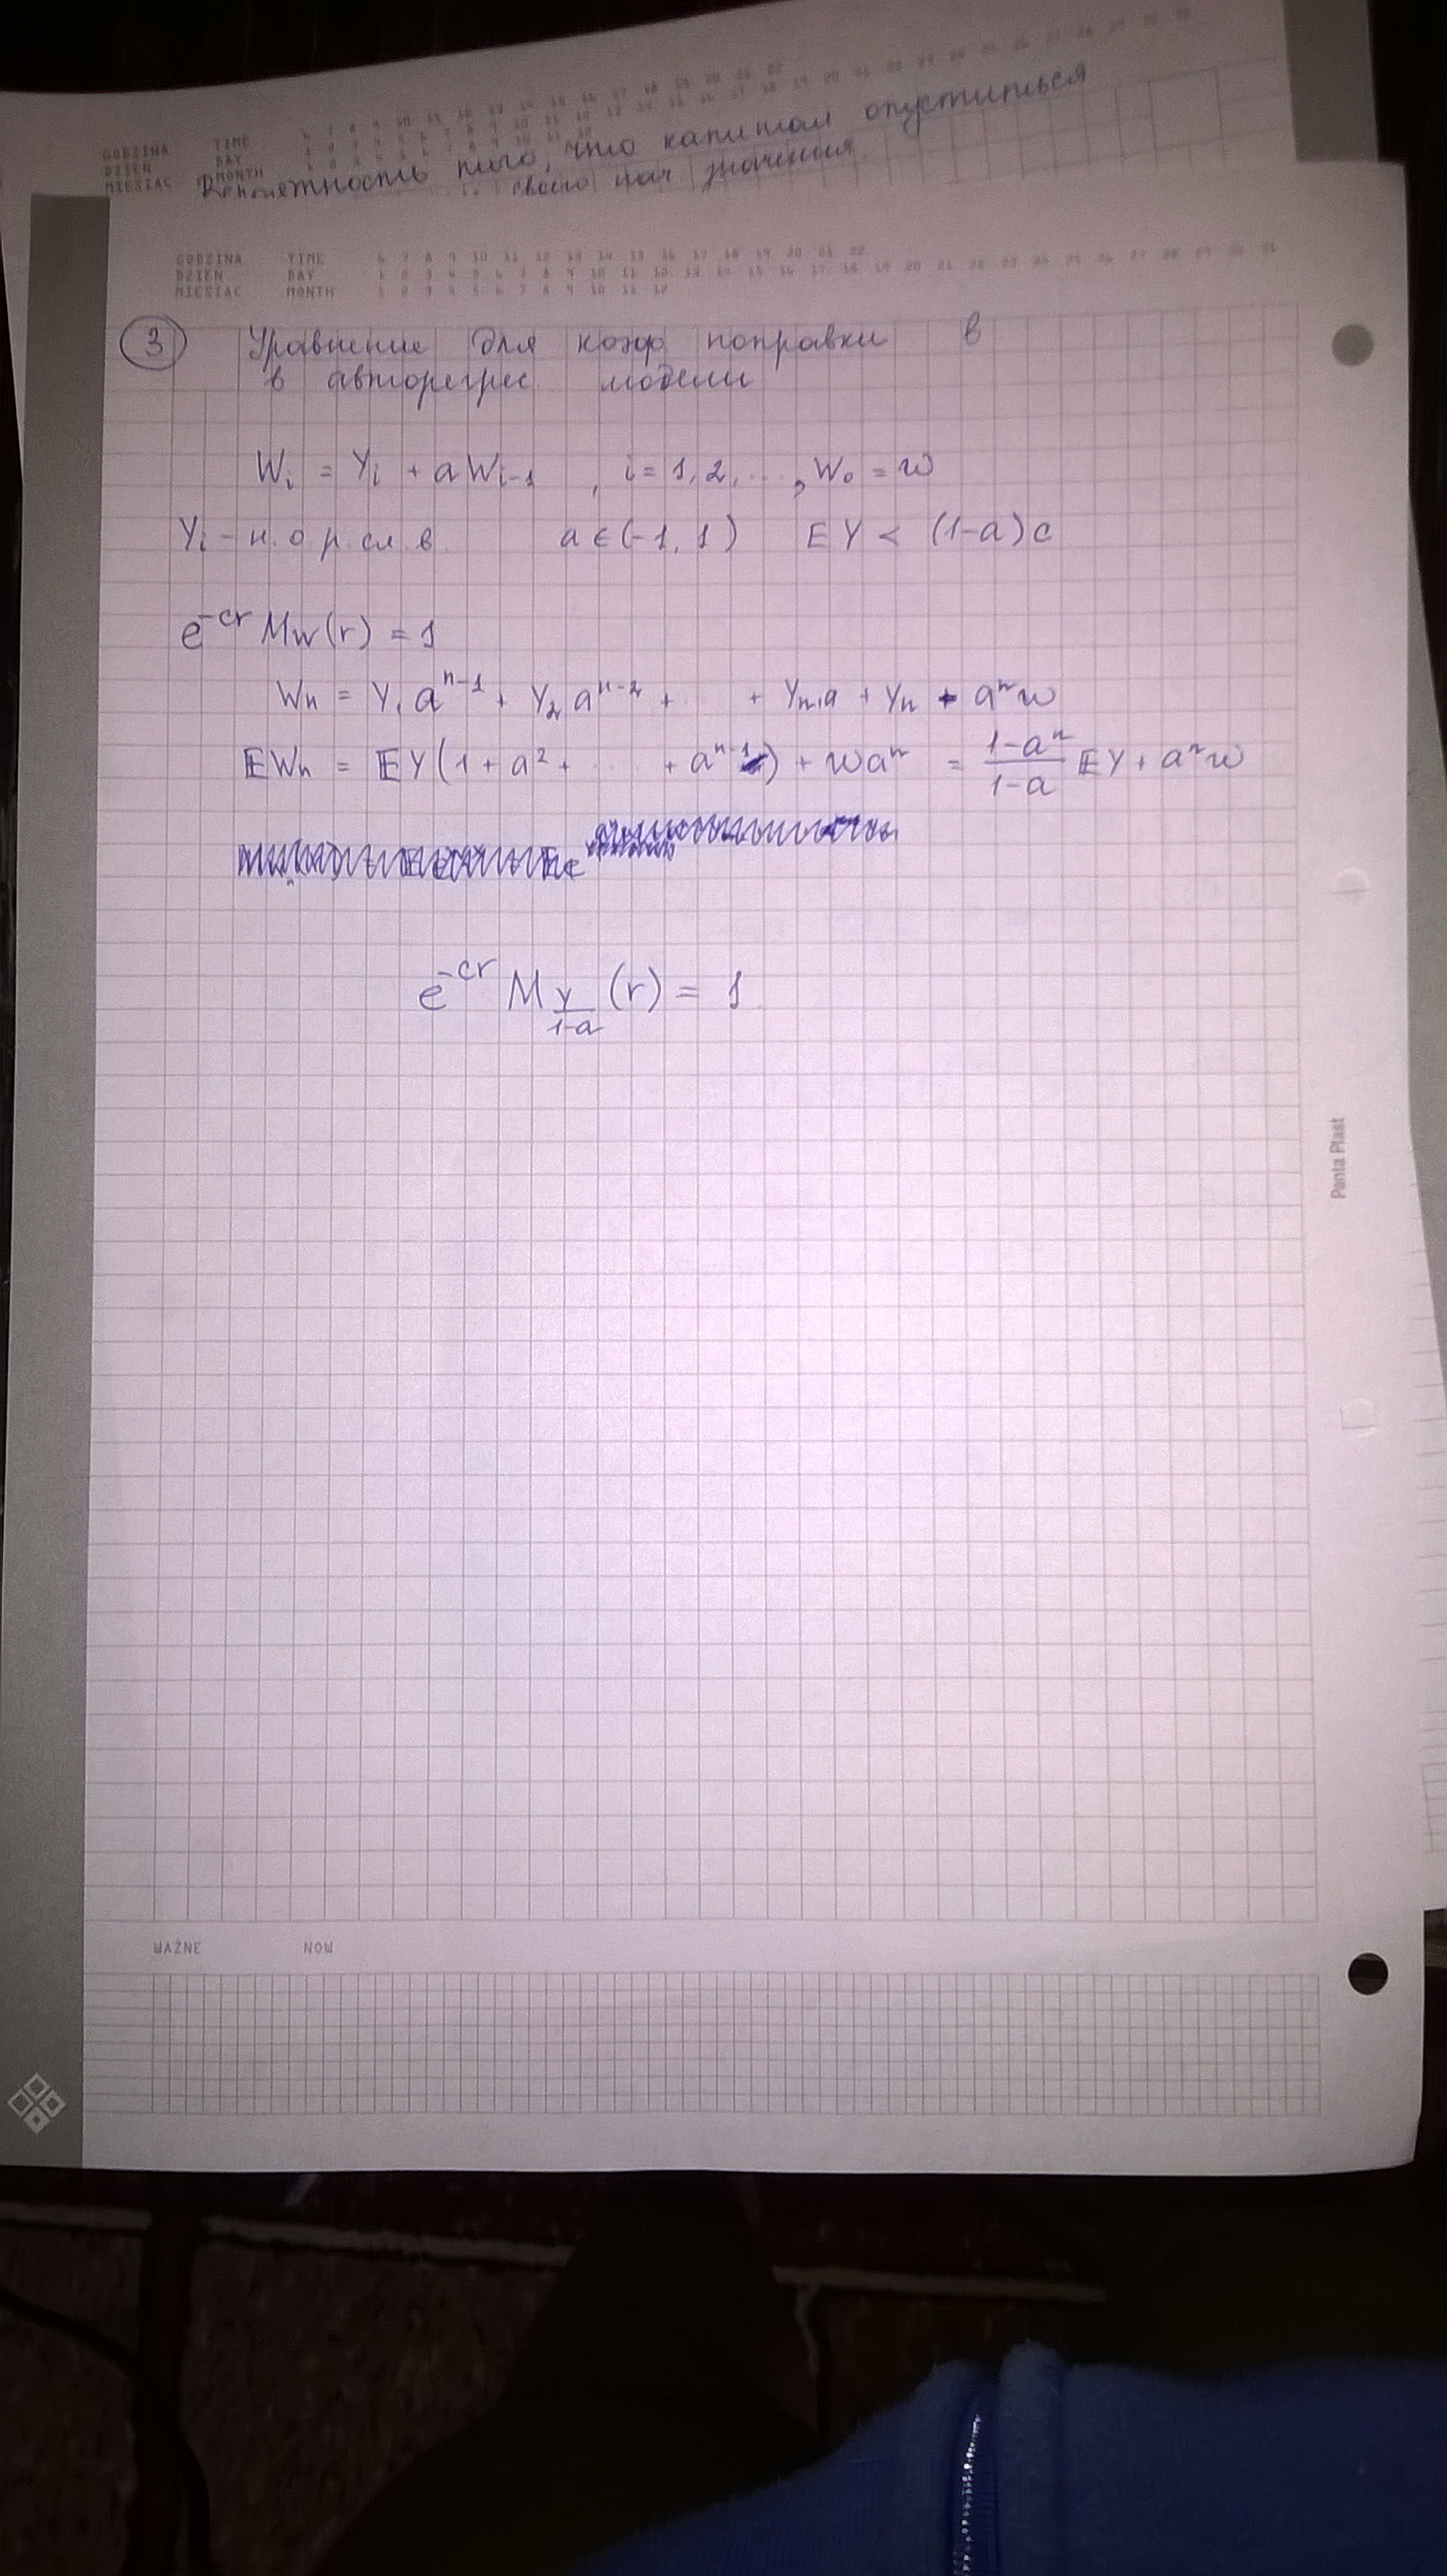 GODZINA TIME 6 7 8 9 10 11 12 13 14 15 16 17 18 19 20 21 22
DZIEŃ DAY
MIESIĄC MONTH
того, что капитал опуститься
своего нач значения
GODZINA TIME 6 7 8 9 10 11 12 13 14 15 16 17 18 19 20 21 22
DZIEŃ DAY 1 2 3 4 5 6 7 8 9 10 11 12 13 14 15 16 17 18 19 20 21 22 23 24 25 26 27 28 29 30 31
MIESIĄC MONTH 1 2 3 4 5 6 7 8 9 10 11 12
3 Уравнение для коэф поправки в
в авторегрес модели
Wᵢ = Yᵢ + a Wᵢ₋₁ , i = 1, 2, ..., W₀ = w
Yᵢ - н.о.р.сл в. a ∈ (-1, 1) EY < (1-a)c
e^{-cr} M_W(r) = 1
Wₙ = Y₁ a^{n-1} + Y₂ a^{n-2} + ... + Yₙ₋₁a + Yₙ + aⁿw
EWₙ = EY(1 + a² + ... + a^{n-1}) + waⁿ = \frac{1-aⁿ}{1-a} EY + aⁿw
e^{-cr} M_{\frac{Y}{1-a}}(r) = 1
Panta Plast
WAŻNE NOW